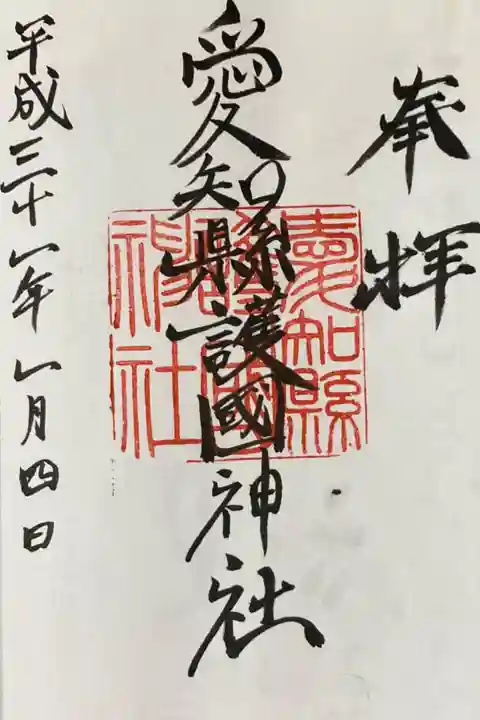 奉拝
愛知縣護國神社
愛知縣護國神社
平成三十一年一月四日